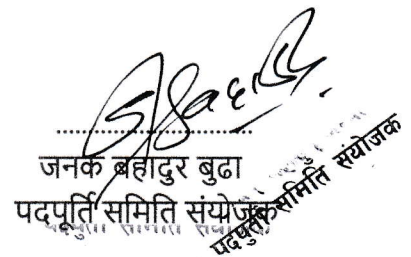 जनक बहादुर बुढा
पदपूर्ति समिति संयोजक
पदपूर्ति समिति संयोजक